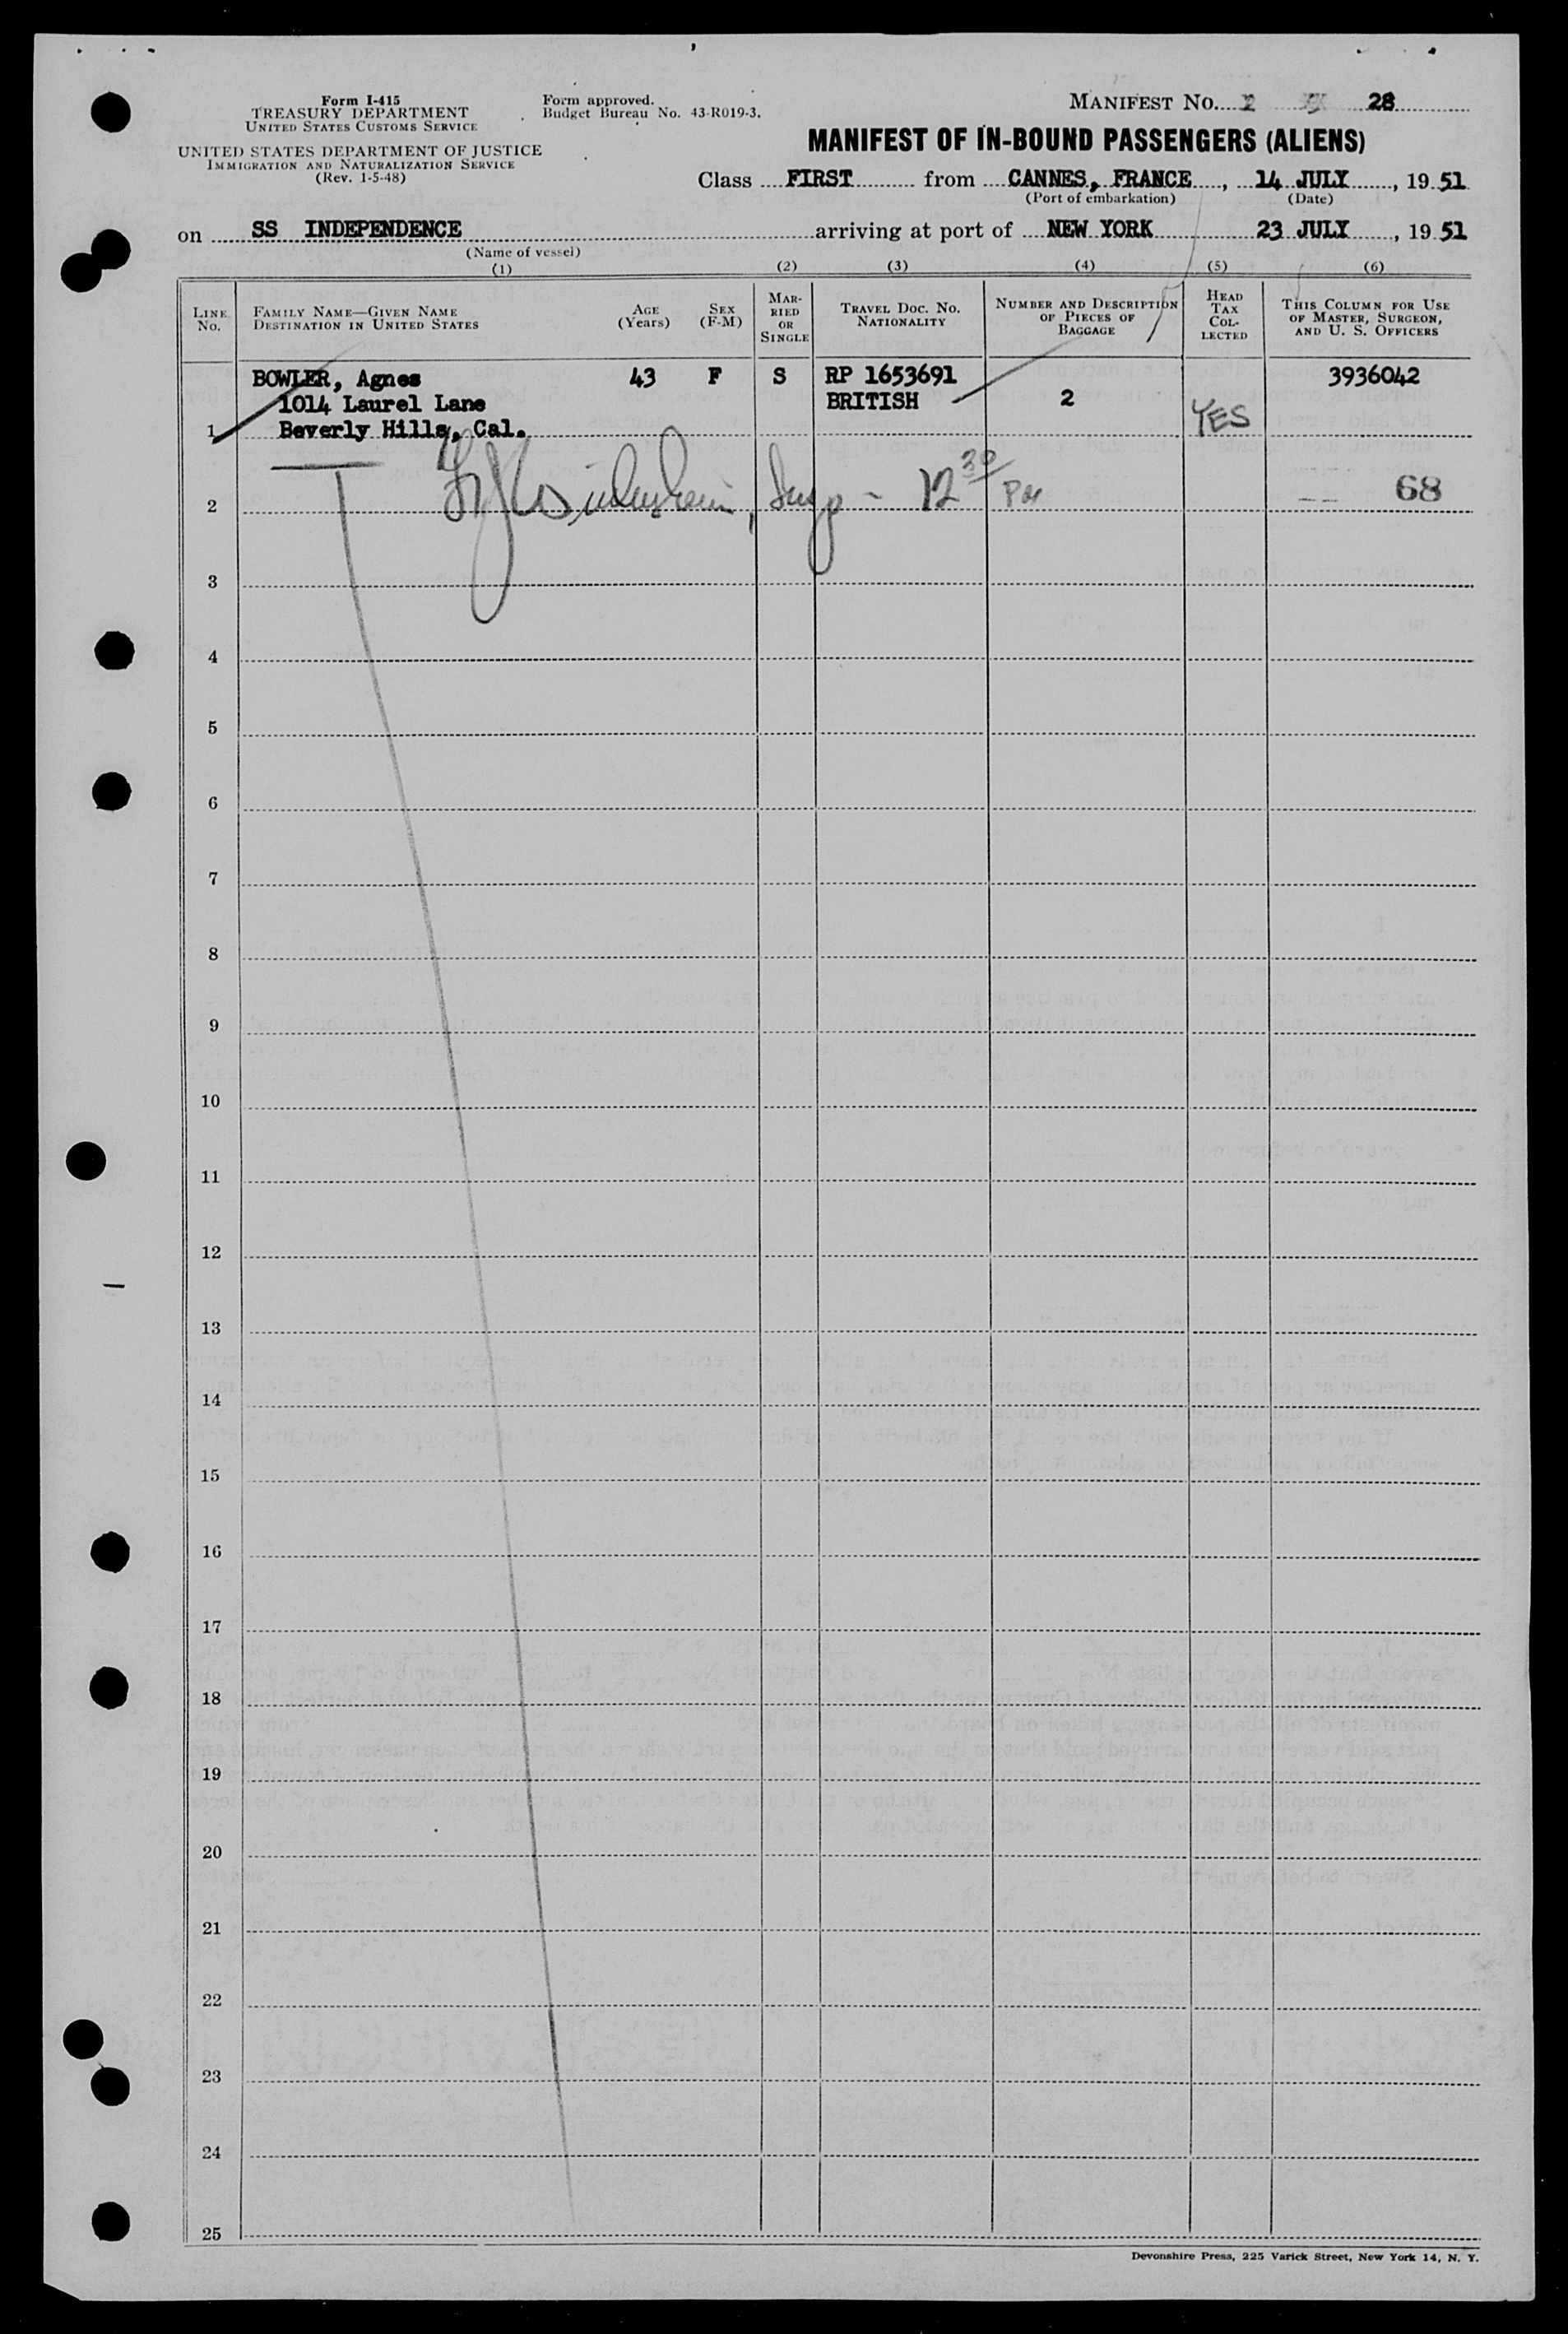 Form I-415
TREASURY DEPARTMENT
UNITED STATES CUSTOMS SERVICE
UNITED STATES DEPARTMENT OF JUSTICE
IMMIGRATION AND NATURALIZATION SERVICE
(Rev. 1-5-48)
Form approved.
Budget Bureau No. 43-R019-3.
MANIFEST NO. 28
MANIFEST OF IN-BOUND PASSENGERS (ALIENS)
Class FIRST from CANNES, FRANCE, 14 JULY, 19 51
(Port of embarkation) (Date)
on SS INDEPENDENCE arriving at port of NEW YORK 23 JULY, 19 51
(Name of vessel)
(1) (2) (3) (4) (5) (6)
LINE No.
FAMILY NAME—GIVEN NAME
DESTINATION IN UNITED STATES
AGE
(Years)
SEX
(F-M)
MAR-
RIED
OR
SINGLE
TRAVEL DOC. NO.
NATIONALITY
NUMBER AND DESCRIPTION
OF PIECES OF
BAGGAGE
HEAD
TAX
COL-
LECTED
THIS COLUMN FOR USE
OF MASTER, SURGEON,
AND U. S. OFFICERS
BOWLER, Agnes 43 F S RP 1653691 3936042
1014 Laurel Lane BRITISH 2
1 Beverly Hills, Cal. YES
2 12 30 PM 68
3
4
5
6
7
8
9
10
11
12
13
14
15
16
17
18
19
20
21
22
23
24
25
Devonshire Press, 225 Varick Street, New York 14, N. Y.